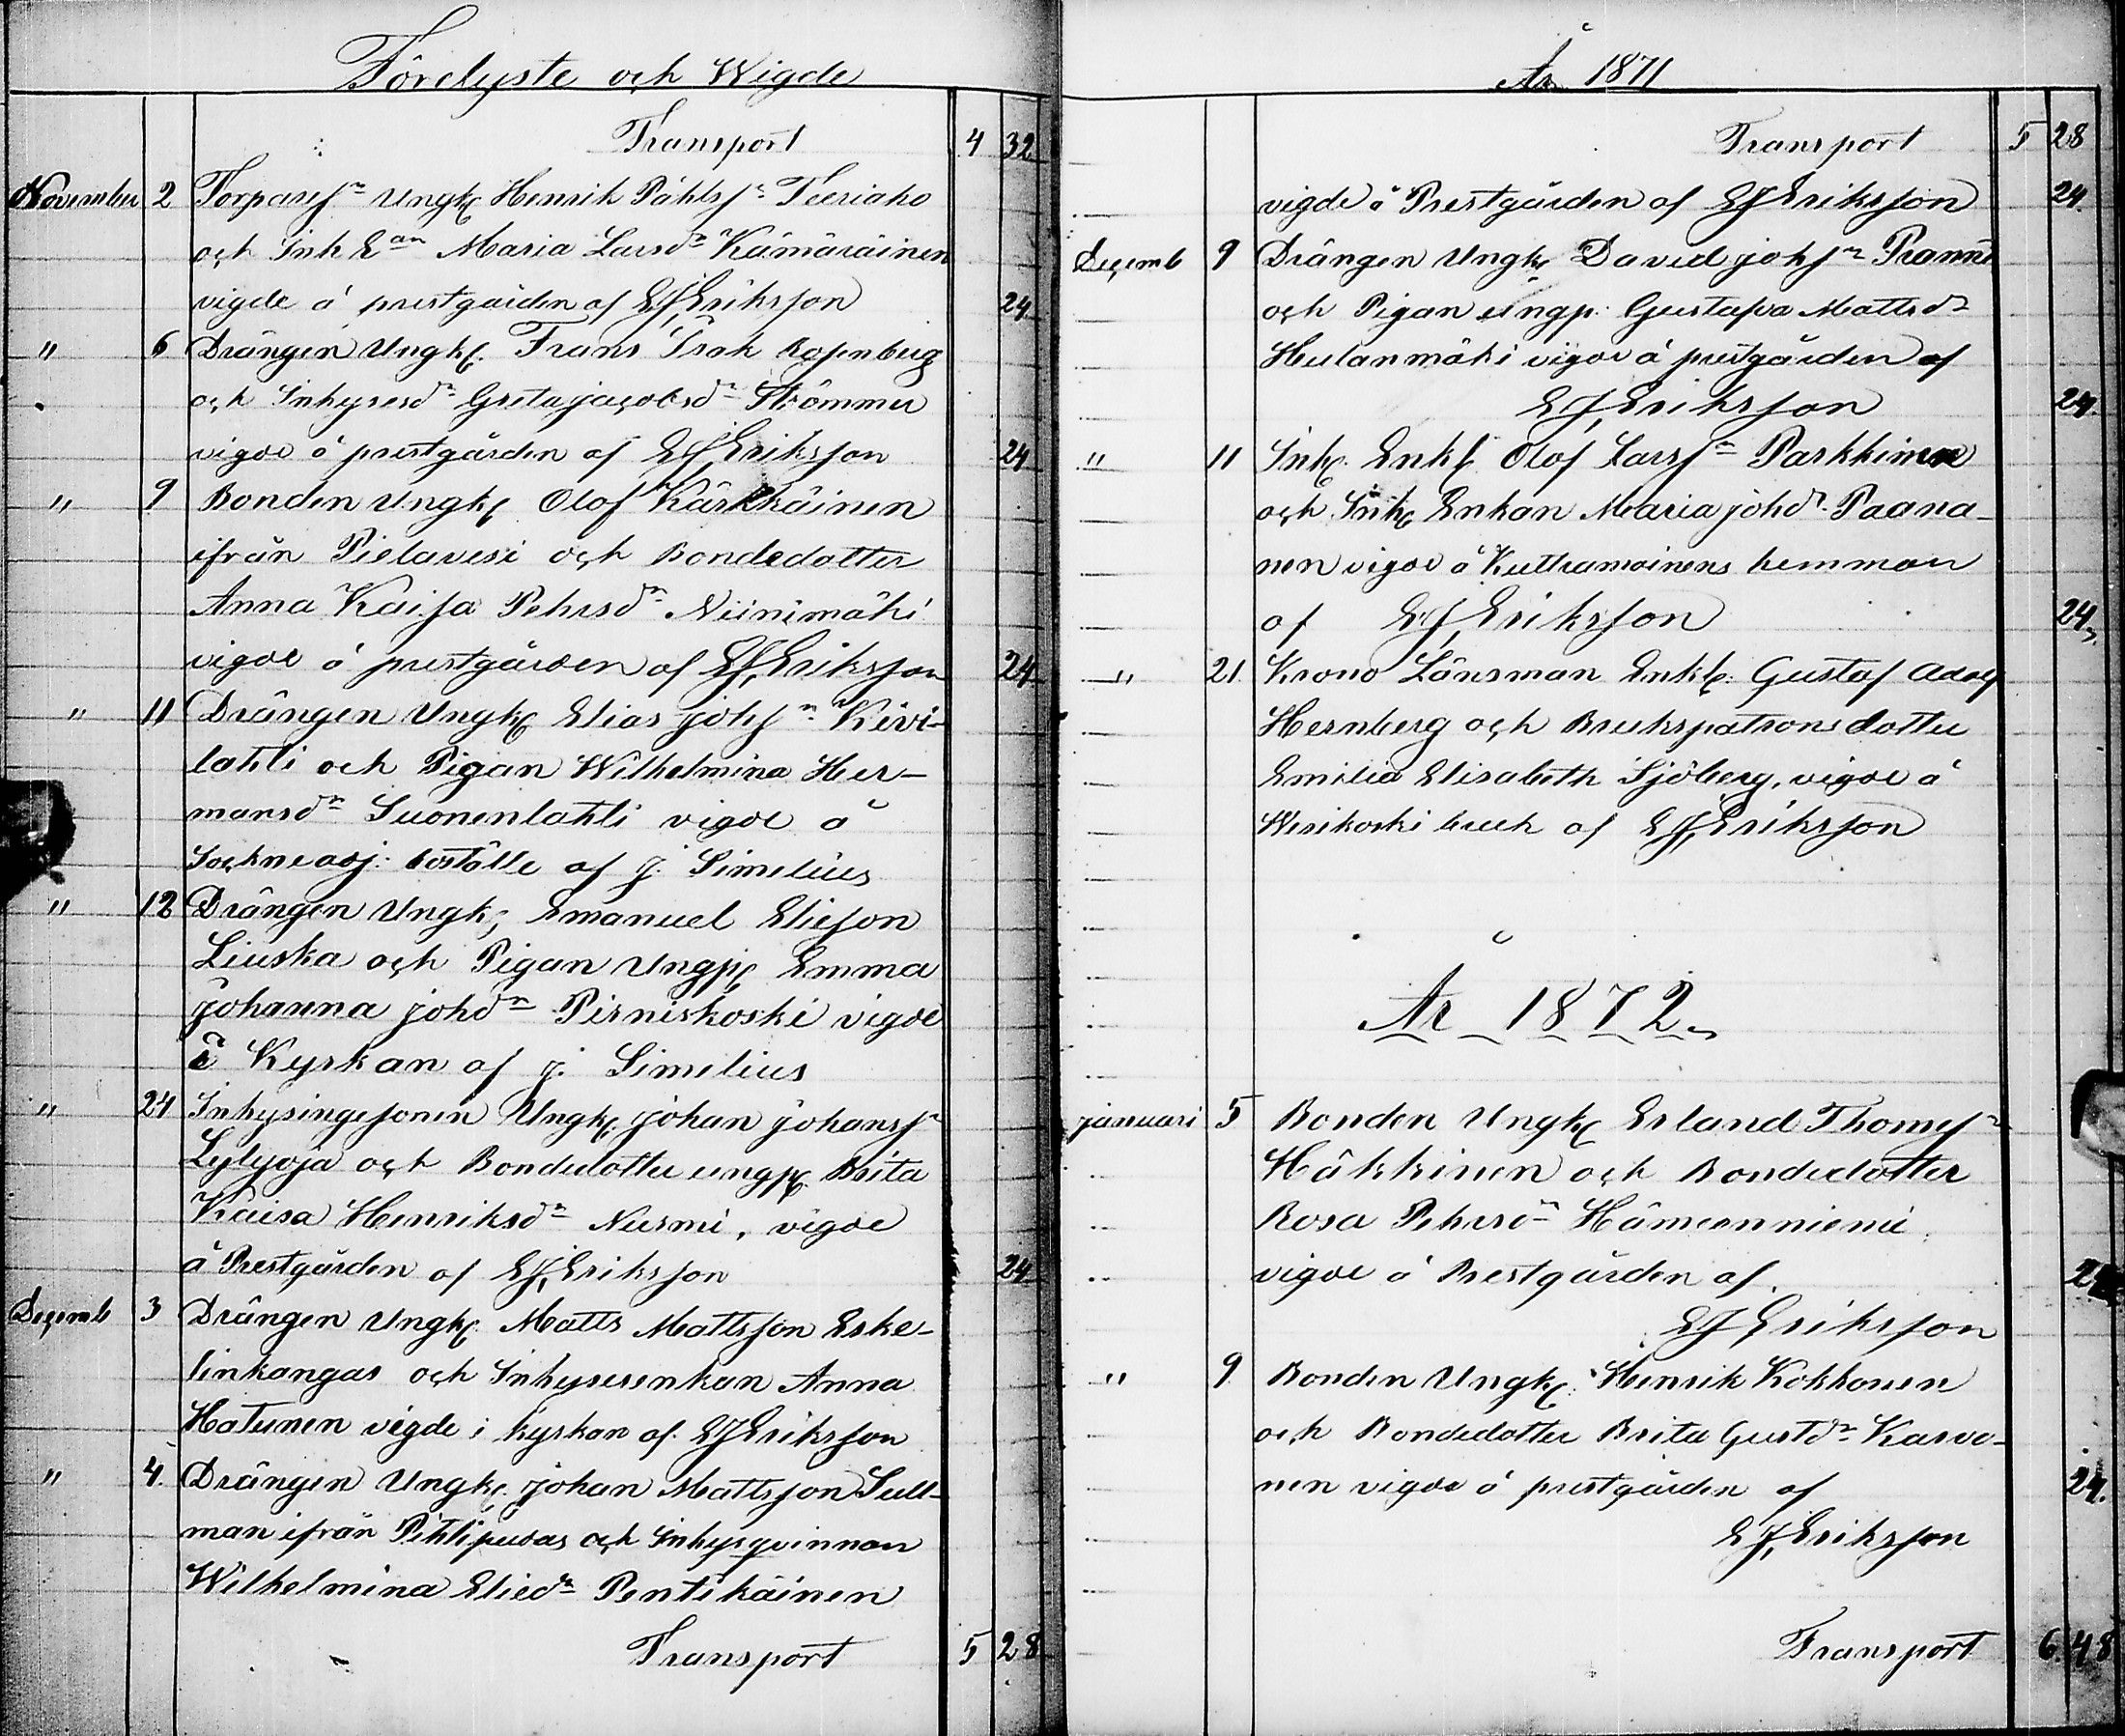 Förelyste och Wigde
Transport 4 32
November 2 Torparesn Ungk. Henrik Påhlsn Teeriaho
och Inh Ean Maria Larsdr Kämäräinen
vigde å prestgården af EJ, Eriksson 24
" 6 Drängen Ungk. Frans Isak Rosenberg
och Inhysesdr Greta Jacobsdr Strömmer
vigde å prestgården af EJ, Eriksson 24
" 9 Bonden Ungk. Olof Kärkkäinen
ifrån Pielavesi och Bondedotter
Anna Kaisa Pehrsdr Niinimäki
vigde å prestgården af EJ, Eriksson 24
" 11 Drängen Ungk. Elias Johsn Kivi-
lahti och Pigan Wilhelmina Her-
mansdr Suonenlahti vigde å
Sockneadj: boställe af J. Simelius
" 12 Drängen Ungk. Emanuel Elieson
Liuska och Pigan Ungp. Emma
Johanna Johdr Pirniskoski vigde
i Kyrkan af J. Simelius
" 24 Inhysingesonen Ungk. Johan Johanss
Lylyoja och Bondedotter ungp. Brita
Kaisa Henriksdr Nurmi, vigde
å Prestgården af EJ, Eriksson 24
Decemb 3 Drängen Ungk. Matts Mattsson Eske-
linkangas och Inhysesenkan Anna
Hatunen vigde i kyrkan af EJ Eriksson
" 4. Drängen Ungk. Johan Mattsson Sull-
man ifrån Pihtipudas och Inhysqvinnan
Wilhelmina Eliedr Pentikäinen
Transport 5 28
År 1871
Transport 5 28
vigde å Prestgården af EJ Eriksson 24.
Decemb 9 Drängen Ungk. David Johsn Pranni
och Pigan ungp. Gustafva Mattsdr
Hulanmäki vigde å prestgården af
EJ, Eriksson 24.
" 11 Inh. Enkl. Olof Larssn Parkkinen
och Inh. Enkan Maria Johdr Paana-
nen vigde å Kuttramoinens hemman
af EJ, Eriksson 24.
" 21. Krono Länsman Enkl. Gustaf Adolf
Hernberg och Brukspatronsdotter
Emilia Elisabeth Sjöberg, vigde å
Wesikoski bruk af EJ, Eriksson
År 1872.
Januari 5 Bonden Ungk. Erland Thomsn
Häkkinen och Bondedotter
Rosa Pehrsdr Hämeenniemi
vigde å Prestgården af 24
EJ, Eriksson
" 9 Bonden Ungk. Henrik Kokkonen
och Bondedotter Brita Gustdr Karvo-
nen vigde å prestgården af 24.
EJ, Eriksson
Transport 6 48